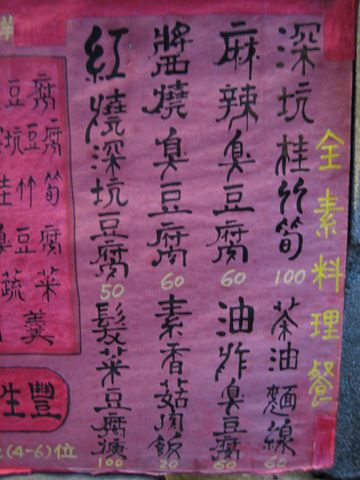 全素料理餐
深坑桂竹筍
100
茶油麵線
60
麻辣臭豆腐
60
油炸臭豆腐
60
醬燒臭豆腐
60
素香菇肉飯
20
紅燒深坑豆腐
50
髮菜豆腐
100
豆腐
坑豆腐
桂竹筍
臭豆腐
蔬菜
羹
豐
(4-6)位